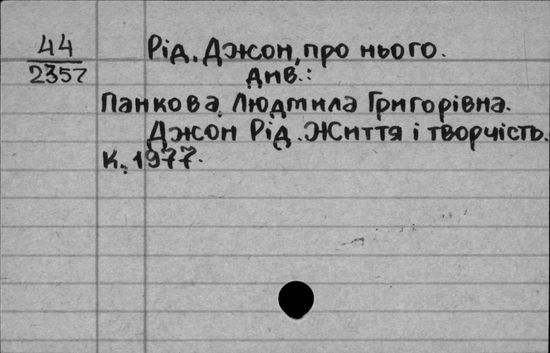 44
2357
Рід, Джон, про нього.
див.:
Панкова, Людмила Григорівна.
Джон Рід. Життя і творчість.
К., 1977.